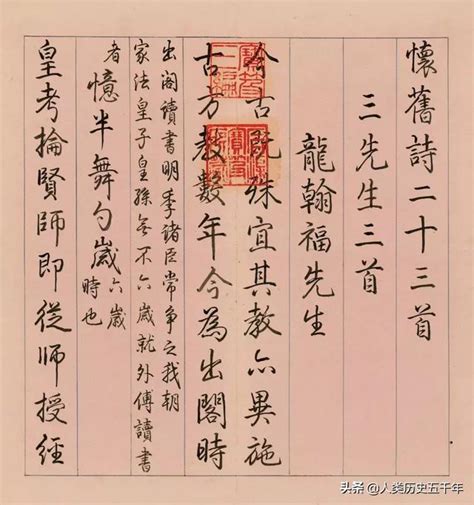 懷舊詩二十三首
三先生三首
龍翰福先生
今古既殊宜其教亦異施
古方教數年今為出閣時
出閣讀書明季諸臣常爭之我朝
家法皇子皇孫無不六歲就外傅讀書
者憶半舞勺歲六歲
時也
皇考掄賢師即從師授經
头条 @人类历史五千年